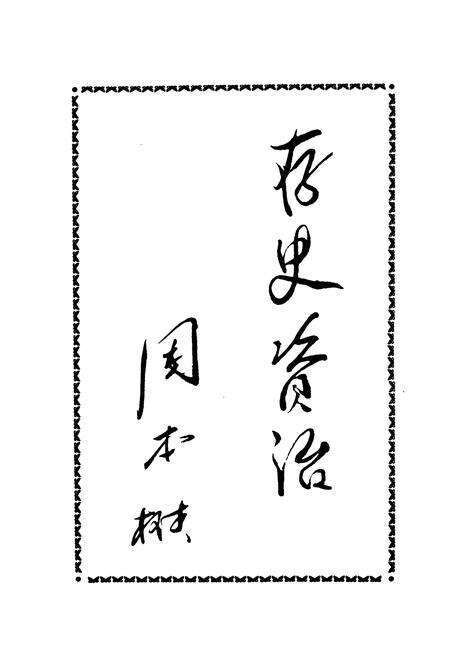 存史資治
周本